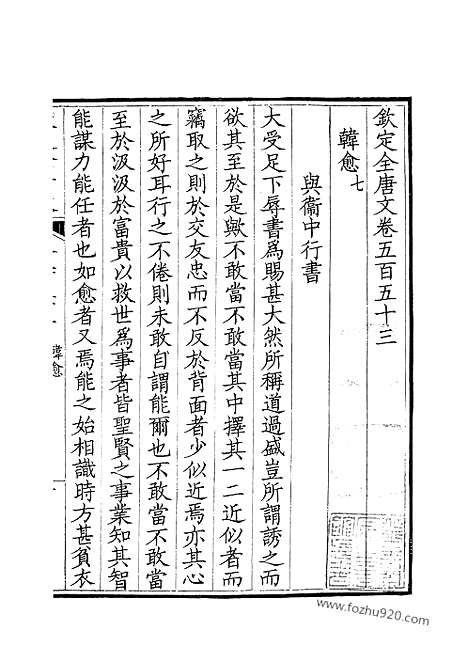 欽定全唐文卷五百五十三
韓愈七
與衞中行書
大受足下辱書爲賜甚大然所稱道過盛豈所謂誘之而
欲其至於是歟不敢當不敢當其中擇其一二近似者而
竊取之則於交友忠而不反於背面者少似近焉亦其心
之所好耳行之不倦則未敢自謂能爾也不敢當不敢當
至於汲汲於富貴以救世爲事者皆聖賢之事業知其智
能謀力能任者也如愈者又焉能之始相識時方甚貧衣
韓愈
www.fozhu920.com